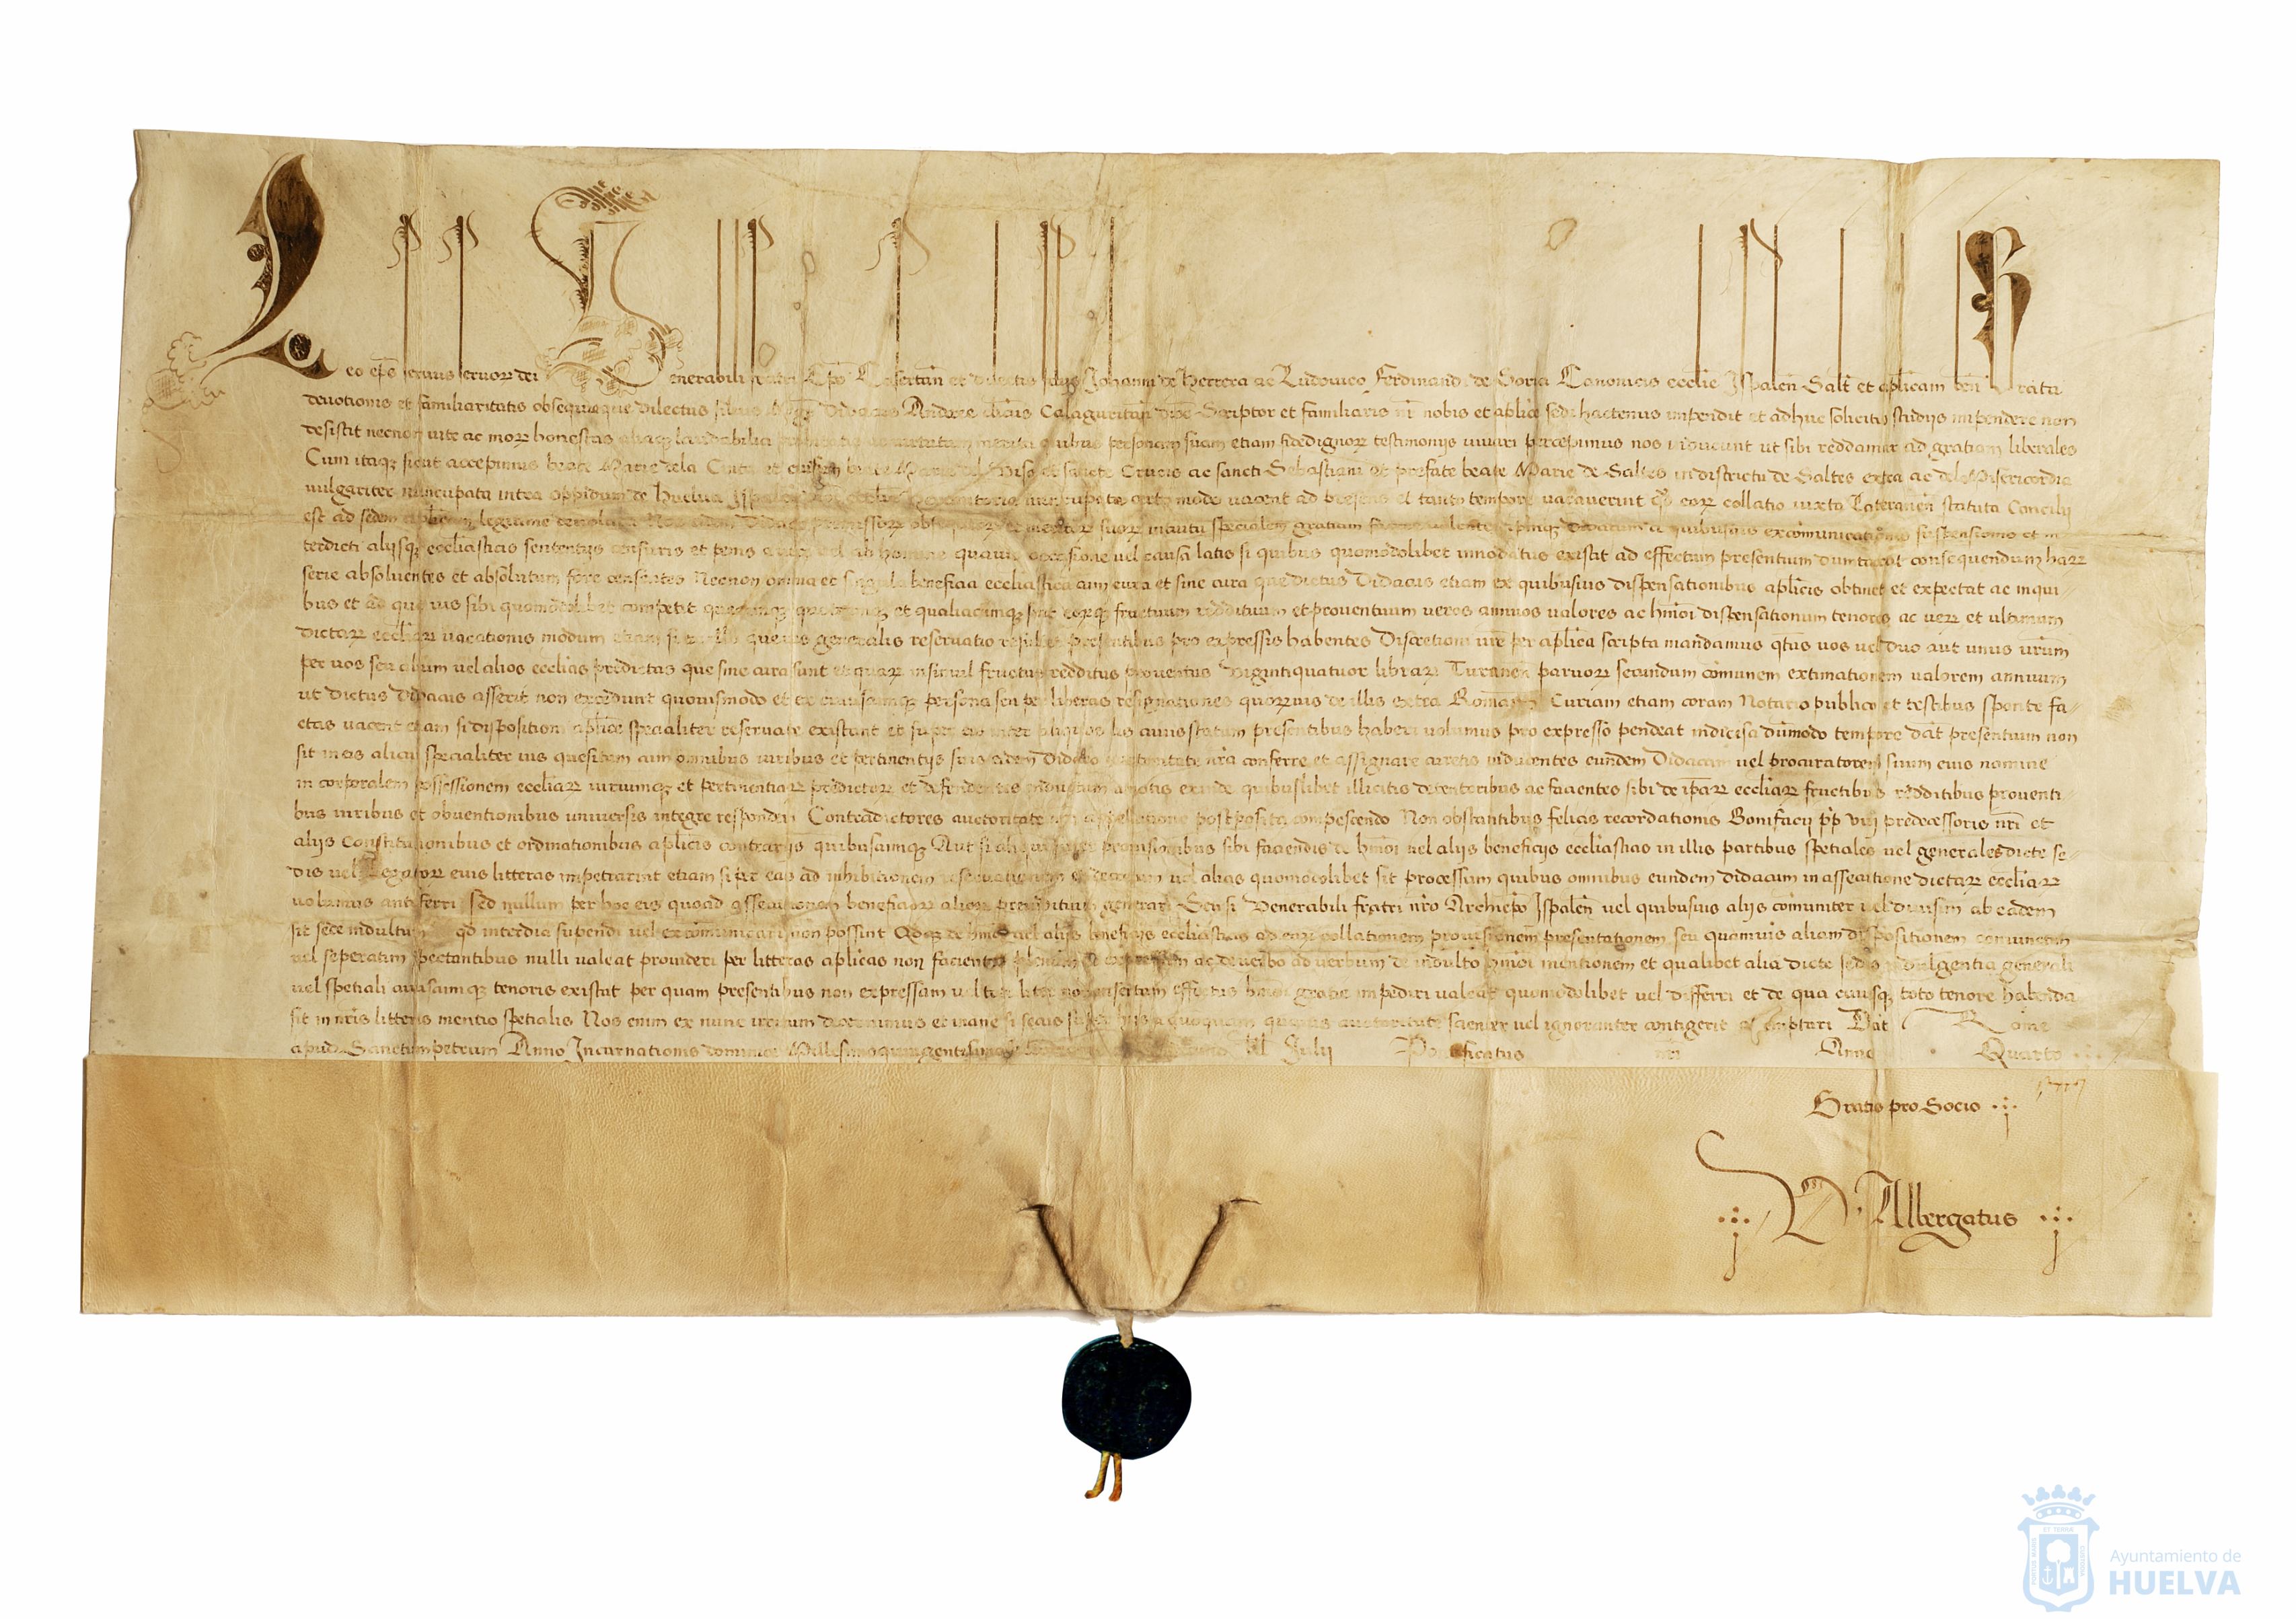 Leo ep̃s servus servorꝝ dei Venerabili fratri Ep̃o Casertañ et dilectis filijs Johanni de Herrera ac Ludovico Ferdinandi de Soria Canonicis ecclie Ispaleñ Salt̃ et aplicam beñ Grata
devotionis et familiaritatis obsequia que dilectus filius Didacus Andree clicus Calaguritañ dioc̃ Scriptor et familiaris nr̃ nobis et aplice sedi hactenus impendit et adhuc solicitis studijs impendere non
desistit necnon vite ac morꝝ honestas aliaqꝫ laudabilia probitatis et virtutum merita quibus personam suam etiam fidedignorꝝ testimonijs iuvari percepimus nos inducunt ut sibi reddamur ad gratiam liberales
Cum itaqꝫ sicut accepimus beate Marie dela Cinta et eiusdem beate Marie del Viso et sancte Crucis ac sancti Sebastiani et prefate beate Marie de Saltes in districtu de Saltes extra ac dela Misericordia
vulgariter nuncupata intra oppidum de Huelva certo modo vacent ad presens et tanto tempore vacaverint qꝫ eorꝝ collatio iuxta Lateraneñ statuta Concilij
est ad sedem aplicam legitime devoluta Nos eidem Didaco premissorꝝ obsequiorꝝ et meritorꝝ suorꝝ intuitu specialem gratiam facere volentes ipsumqꝫ Didacum a quibusvis excomunicationis suspensionis et in
terdicti alijsqꝫ ecclesiasticis sententijs censuris et penis a iure vel ab homine quavis occasione vel causa latis si quibus quomodolibet innodatus existit ad effectum presentium dumtaxat consequendum harꝝ
serie absolventes et absolutum fore censentes Necnon omnia et singula beneficia ecclesiastica cum cura et sine cura que dictus Didacus etiam ex quibusvis dispensationibus aplicis obtinet et expectat ac in qui//
bus et ad que ius sibi quomodolibet competit quecunqꝫ quotcunqꝫ et qualiacunqꝫ sint eorqꝫ fructuum reddituum et proventuum veros annuos valores ac hmoi dispensationum tenores ac verꝝ et ultimum
dictarꝝ eccliarꝝ vacationis modum etiam si ex illo quevis generalis reservatio resultet presentibus pro expressis habentes Discretioni vr̃e per aplica scripta mandamus qtus vos vel duo aut unus vrum
per vos seu alium vel alios ecclias predictas que sine cura sunt et quarꝝ insimul fructus redditus proventus vigintiquatuor librarꝝ Turoneñ parvorꝝ secundum comunem extimationem valorem annuum
ut dictus Didacus asserit non excedunt quovismodo et ex cuiuscunqꝫ persona seu per liberas resignationes quorumvis de illis extra Romanam Curiam etiam coram Notario publico et testibus sponte fa//
ctas vacent etiam si dispositioni aplice specialiter reservate existant et super eis inter aliquos lis cuius statum presentibus haberi volumus pro expresso pendeat indecisa dummodo tempore dat̃ presentium non
sit in eis alicui specialiter ius quesitum cum omnibus iuribus et pertinentijs suis eidem Didaco auctoritate nr̃a conferre et assignare curetis inducentes eundem Didacum vel procuratorem suum eius nomine
in corporalem possessionem eccliarꝝ iuriumqꝫ et pertinentiarꝝ predictorꝝ et defendentes inductum amotis exinde quibuslibet illicitis detentoribus ac facientes sibi de ip̃arꝝ eccliarꝝ fructibus redditibus proventi//
bus iuribus et obventionibus universis integre responderi Contradictores auctoritate nr̃a appellatione postposita compescendo Non obstantibus felicis recordationis Bonifacij pp̃ viij predecessoris nr̃i et
alijs Constitutionibus et ordinationibus aplicis contrarijs quibuscunqꝫ Aut si aliqui super provisionibus sibi faciendis de hmoi vel alijs beneficijs ecclesiasticis in illis partibus spetiales vel generales dicte se//
dis vel Legatorꝝ eius litteras impetrarint etiam si per eas ad inhibitionem reservationem et decretum vel alias quomodolibet sit processum quibus omnibus eundem Didacum in assecutione dictarꝝ eccliarꝝ
volumus anteferri sed nullum per hoc eis quoad assecutionem beneficiorꝝ aliorꝝ preiuditium generari Seu si Venerabili fratri nr̃o Archiep̃o Ispaleñ vel quibusvis alijs comuniter vel divisim ab eadem
sit sede indultum qd̃ interdici suspendi vel excomunicari non possint Qdqꝫ de hmoi vel alijs beneficijs ecclesiasticis ad eorꝝ collationem provisionem presentationem seu quamvis aliam dispositionem coniunctim
vel seperatim spectantibus nulli valeat provideri per litteras aplicas non facientes plenam et expressam ac de verbo ad verbum de indulto hmoi mentionem et qualibet alia dicte sedis indulgentia generali
vel spetiali cuiuscumqꝫ tenoris existat per quam presentibus non expressam vel totaliter non insertam effectus hmoi gratie impediri valeat quomodolibet vel differri et de qua cuiusqꝫ toto tenore habenda
sit in nr̃is litteris mentio spetialis Nos enim ex nunc irritum decernimus et inane si secus super hijs a quoquam quavis auctoritate scienter vel ignoranter contigerit attemptari Dat̃ Rome
apud Sanctumpetrum Anno Incarnationis dominice Millesimoquingentesimo Julij Pontificatus nr̃i Anno Quarto
Gratis pro Socio
D. Albergatus
Ayuntamiento de
HUELVA